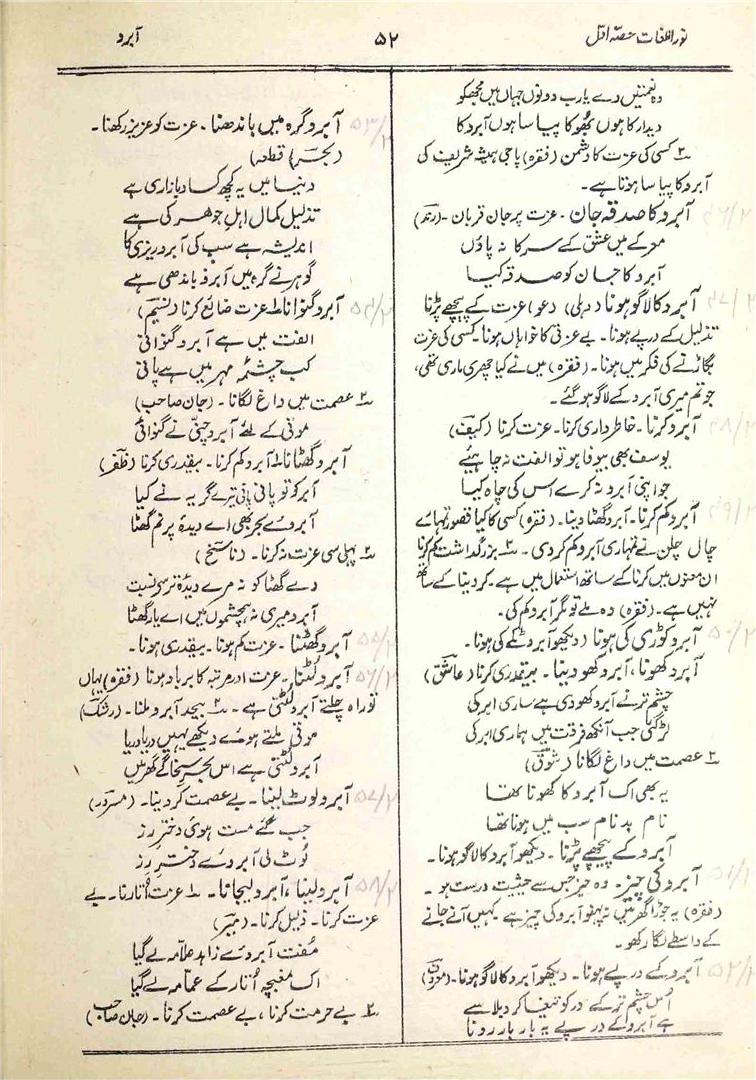 نور اللغات حصّہ اوّل
۵۲
آبرو
وہ نعمتیں دے یارب دونوں جہاں میں مجھکو
دیدار کا ہوں بھوکا پیاسا ہوں آبرو کا
؎۲ کسی کی عزت کا دشمن (فقرہ) پاجی ہمیشہ شریف کی
آبرو کا پیاسا ہوتا ہے۔
آبرو کا صدقہ جان۔ عزت پر جان قربان۔ (رند)
معرکے میں عشق کے سرکا نہ پاؤں
آبرو کا جان کو صدقہ کیا
آبرو کا لاگو ہونا (دہلی) (عو) عزت کے پیچھے پڑنا
تذلیل کے درپے ہونا۔ بے عزتی کا خواہاں ہونا۔ کسی کی عزت
بگاڑنے کی فکر میں ہونا۔ (فقرہ) میں نے کیا چھری ماری تھی،
جو تم میری آبرو کے لاگو ہو گئے۔
آبرو کرنا۔ خاطر داری کرنا۔ عزت کرنا (کیف)
یوسف بھی بیوفا ہو تو الفت نہ چاہیئے
جو اپنی آبرو نہ کرے اس کی چاہ کیا
آبرو کم کرنا۔ آبرو گھٹا دینا۔ (فقرہ) کسی کا کیا قصور تمہارے
چال چلن نے تمہاری آبرو کم کر دی۔ ؎۲ بزرگداشت کم کرنا
ان معنوں میں کرنا کے ساتھ استعمال میں ہے۔ کر دینا کے ساتھ
نہیں ہے۔ (فقرہ) وہ ملے تو مگر آبرو کم کی۔
آبرو کوڑی کی ہونا (دیکھو آبرو ٹکے کی ہونا۔
آبرو کھونا، آبرو کھو دینا۔ بیقدری کرنا (عاشق)
چشم تر نے آبرو کھو دی ہے ساری ابر کی
لڑ گئی جب آنکھ فرقت میں ہماری ابر کی
؎۲ عصمت میں داغ لگانا (شوق)
یہ بھی اک آبرو کا کھونا تھا
نام بد نام سب میں ہونا تھا
آبرو کے پیچھے پڑنا۔ دیکھو آبرو کا لاگو ہونا۔
آبرو کی چیز۔ وہ چیز جس سے حیثیت درست ہو۔
(فقرہ) یہ جوڑا گھر میں نہ پہنو آبرو کی چیز ہے۔ کہیں آنے جانے
کے واسطے لگا رکھو۔
آبرو کے درپے ہونا۔ دیکھو آبرو کا لاگو ہونا۔ (معروف)
اُس چشم تر کے در کو تیغا کر دیلا سے
ہے آبرو کے درپے یہ بار بار رونا
آبرو گرہ میں باندھنا۔ عزت کو عزیز رکھنا۔
(بحر) قطعہ
دنیا میں یہ کچھ کساد بازاری ہے
تذلیل کمال اہل جوہر کی ہے
اندیشہ ہے سب کی آبرو ریزی کا
گوہر نے گرہ میں آبرو باندھی ہے
آبرو گنوانا ؎۱ عزت ضائع کرنا (نسیم)
الفت میں ہے آبرو گنوائی
کب چشمۂ مہر میں ہے پانی
؎۲ عصمت میں داغ لگانا۔ (جان صاحب)
موتی کے لیے آبرو چنّی نے گنوائی
آبرو گھٹانا ؎۱ آبرو کم کرنا۔ بیقدری کرنا (ظفر)
ابر کو تو پانی پانی تیرے گریہ نے کیا
آبروے بحر بھی اے دیدۂ پرنم گھٹا
؎۲ پہلی سی عزت نہ کرنا۔ (ناسخ)
دے گھٹا کو نہ مرے دیدۂ تر سی نسبت
آبرو میری نہ ہمچشموں میں اے یار گھٹا
آبرو گھٹنا۔ عزت کم ہونا۔ بیقدری ہونا۔
آبرو لٹنا۔ عزت اور مرتبہ کا برباد ہونا (فقرہ) یہاں
تو راہ چلتے آبرو لٹتی ہے۔ ؎۲ بیحد آبرو ملنا۔ (رشک)
موتی ملتے ہوئے دیکھے نہیں دریا دریا
آبرو لٹتی ہے اس بحرِ سخا کے گھر میں
آبرو لوٹ لینا۔ بے عصمت کر دینا۔ (مسرور)
جب گئے مست ہوئی دختر رز
لوٹ لی آبروے دختر رز
آبرو لینا، آبرو لیجانا۔ ؎۱ عزت اُتارنا۔ بے
عزت کرنا۔ ذلیل کرنا۔ (میر)
مُفت آبروے زاہد علّامہ لے گیا
اک مغبچہ اُتار کے عمامہ لے گیا
؎۲ بے حرمت کرنا، بے عصمت کرنا۔ (جان صاحب)